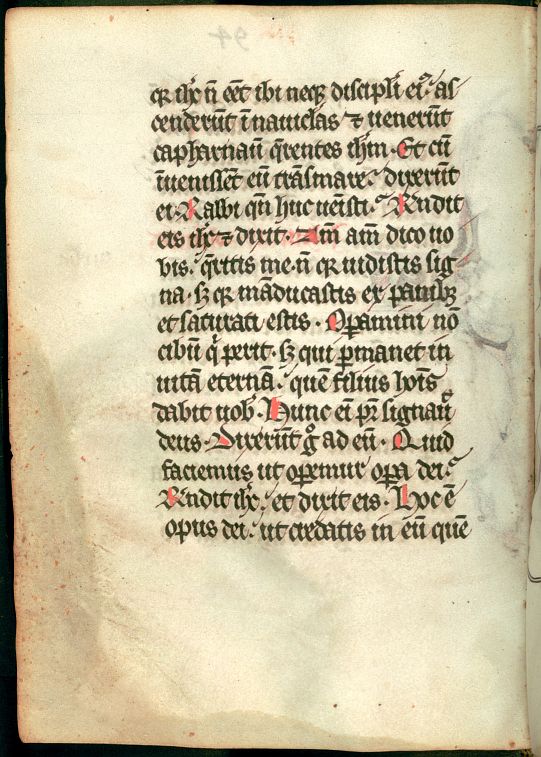 qr ihc̄ n̄ eēt ibi neqꝫ discipl̄i eiꝰ. as
cenderūt ī nauiclas ⁊ uenerūt
capharnaū q̄rentes ihm̄. Et cū
īuenissēt eū trāsmare. dixerūt
ei. Rabbi qn̄ huc uēisti. R̄ndit
eis ihc̄ ⁊ dixit. Am̄ am̄ dico uo
bis. q̄ritis me. n̄ qr uidistis sig
na. sꝫ qr māducastis ex panibꝫ
et saturati estis. Oꝑamini nō
cibū q̄ perit. sꝫ qui ꝑmanet in
uitā eternā. quē filius hoīs
dabit uob̄. Hunc eī pr̄ signauī
deus. Dixerūt gͦ ad eū. Quid
faciemus ut oꝑemur oꝑa dei.
R̄ndit ihc̄. et dixit eis. Hoc ē
opus dei. ut credatis in eū quē